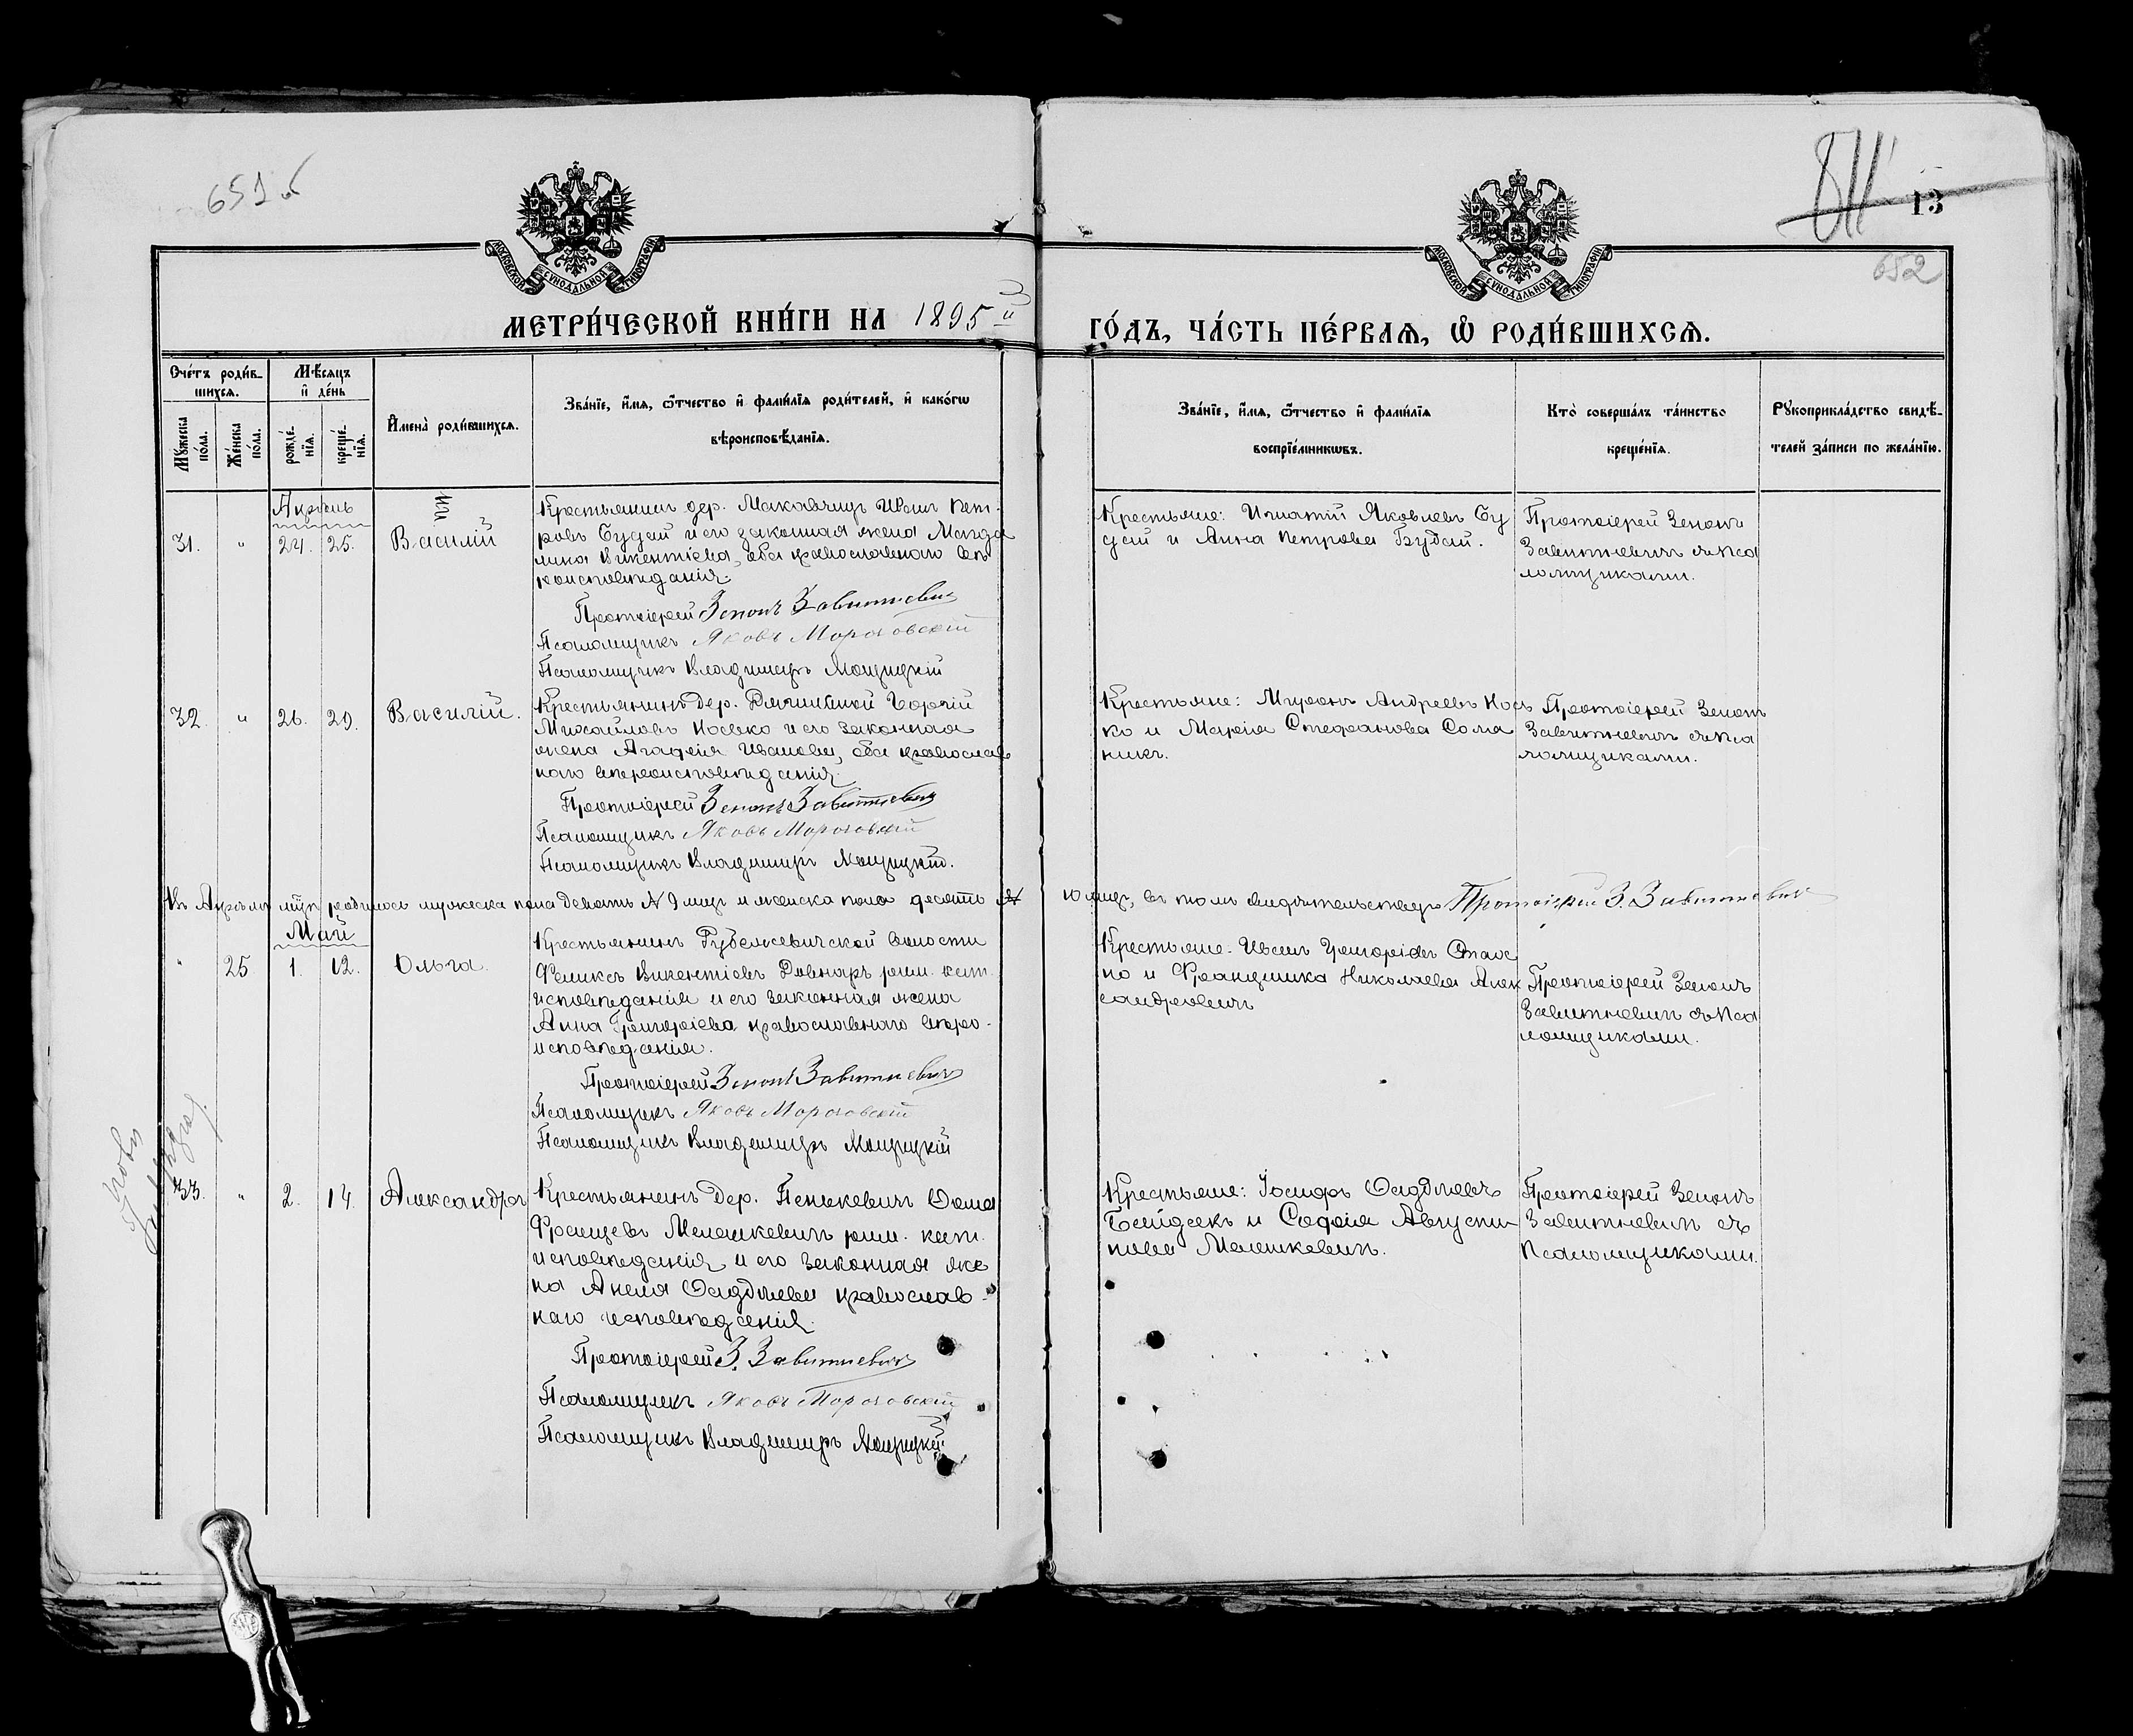 651 об
13
652
МОСКОВСКОЙ СѴНОДАЛЬНОЙ ТИПОГРАФІИ
МОСКОВСКОЙ СѴНОДАЛЬНОЙ ТИПОГРАФІИ
МЕТРИ́ЧЕСКОЙ КНИ́ГИ НА 1895 й
ГО́ДЪ, ЧА́СТЬ ПЕ́РВАѦ, Ѡ҆ РОДИ́ВШИХСѦ.
Счéтъ роди́в-
шихсѧ.
Мꙋ́жеска по́ла.
Же́нска по́ла.
Мѣ́сѧцъ и҆ де́нь
рожде́-нїѧ.
креще́-нїѧ.
И҆мена̀ роди́вшихсѧ.
Зва́нїе, и҆́мѧ, ѻ҆́тчество и҆ фамі́лїѧ роди́телей, и҆ како́гѡ
вѣроисповѣ́данїѧ.
Зва́нїе, и҆́мѧ, ѻ҆́тчество и҆ фамі́лїѧ
воспрїе́мникѡвъ.
Кто̀ соверша́лъ та́инство
креще́нїѧ.
Рꙋкоприкла́дство свидѣ́-
телей за́писи по жела́нїю.
Апрѣль
31. " 24. 25. Василій
Крестьянинъ дер. Маковчицъ Иванъ Пет-
ровъ Будай и его законная жена Магда
лина Викентіева, оба православнаго вѣ
роисповѣданія.
Протоіерей Зенонъ Завитневичъ
Псаломщикъ Яковъ Мороховскій
Псаломщикъ Владимиръ Мощицкій
Крестьяне: Игнатій Яковлевъ Бу
дай и Анна Петрова Будай.
Протоіерей Зенонъ
Завитневичъ съ Пса
ломщиками.
32. " 26. 29. Василій.
Крестьянинъ дер. Георгій
Михайловъ Носевко и его законная
жена Агафія Иванова, оба православ
наго вѣроисповѣданія.
Протоіерей Зенонъ Завитневичъ
Псаломщикъ Яковъ Мороховскій
Псаломщикъ Владимиръ Мощицкій.
Крестьяне: Миронъ Андреевъ Носъ
ко и Марія Стефанова Сома
никъ.
Протоіерей Зенонъ
Завитневичъ съ Пса
ломщиками.
Въ Апрѣлѣ м-цѣ родилось мужеска пола девять 9 лицъ и женска пола десять
10 лицъ, въ томъ свидѣтельствуетъ Протоіерей З. Завитневичъ
Май
" 25. 1. 12. Ольга.
Крестьянинъ Рубежевичской волости
Феликсъ Викентіевъ Ровнаръ рим. кат.
исповѣданія и его законная жена
Анна Григоріева православнаго вѣро-
исповѣданія.
Протоіерей Зенонъ Завитневичъ
Псаломщикъ Яковъ Мороховскій
Псаломщикъ Владимиръ Мощицкій
Крестьяне: Иванъ Григоріевъ
но и Францишка Николаева Алек
сандровичъ
Протоіерей Зенонъ
Завитневичъ съ Пса
ломщиками.
33. " 2. 14. Александръ
Крестьянинъ дер. Пенькевичъ Ѳома
Францевъ Мелешкевичъ рим. кат.
исповѣданія и его законная же
на Анеля православ-
наго исповѣданія.
Протоіерей З. Завитневичъ
Псаломщикъ Яковъ Мороховскій
Псаломщикъ Владимиръ Мощицкій
Крестьяне: Іосифъ
и Софія Августи
нова Мелешкевичъ.
Протоіерей Зенонъ
Завитневичъ съ
Псаломщиками.